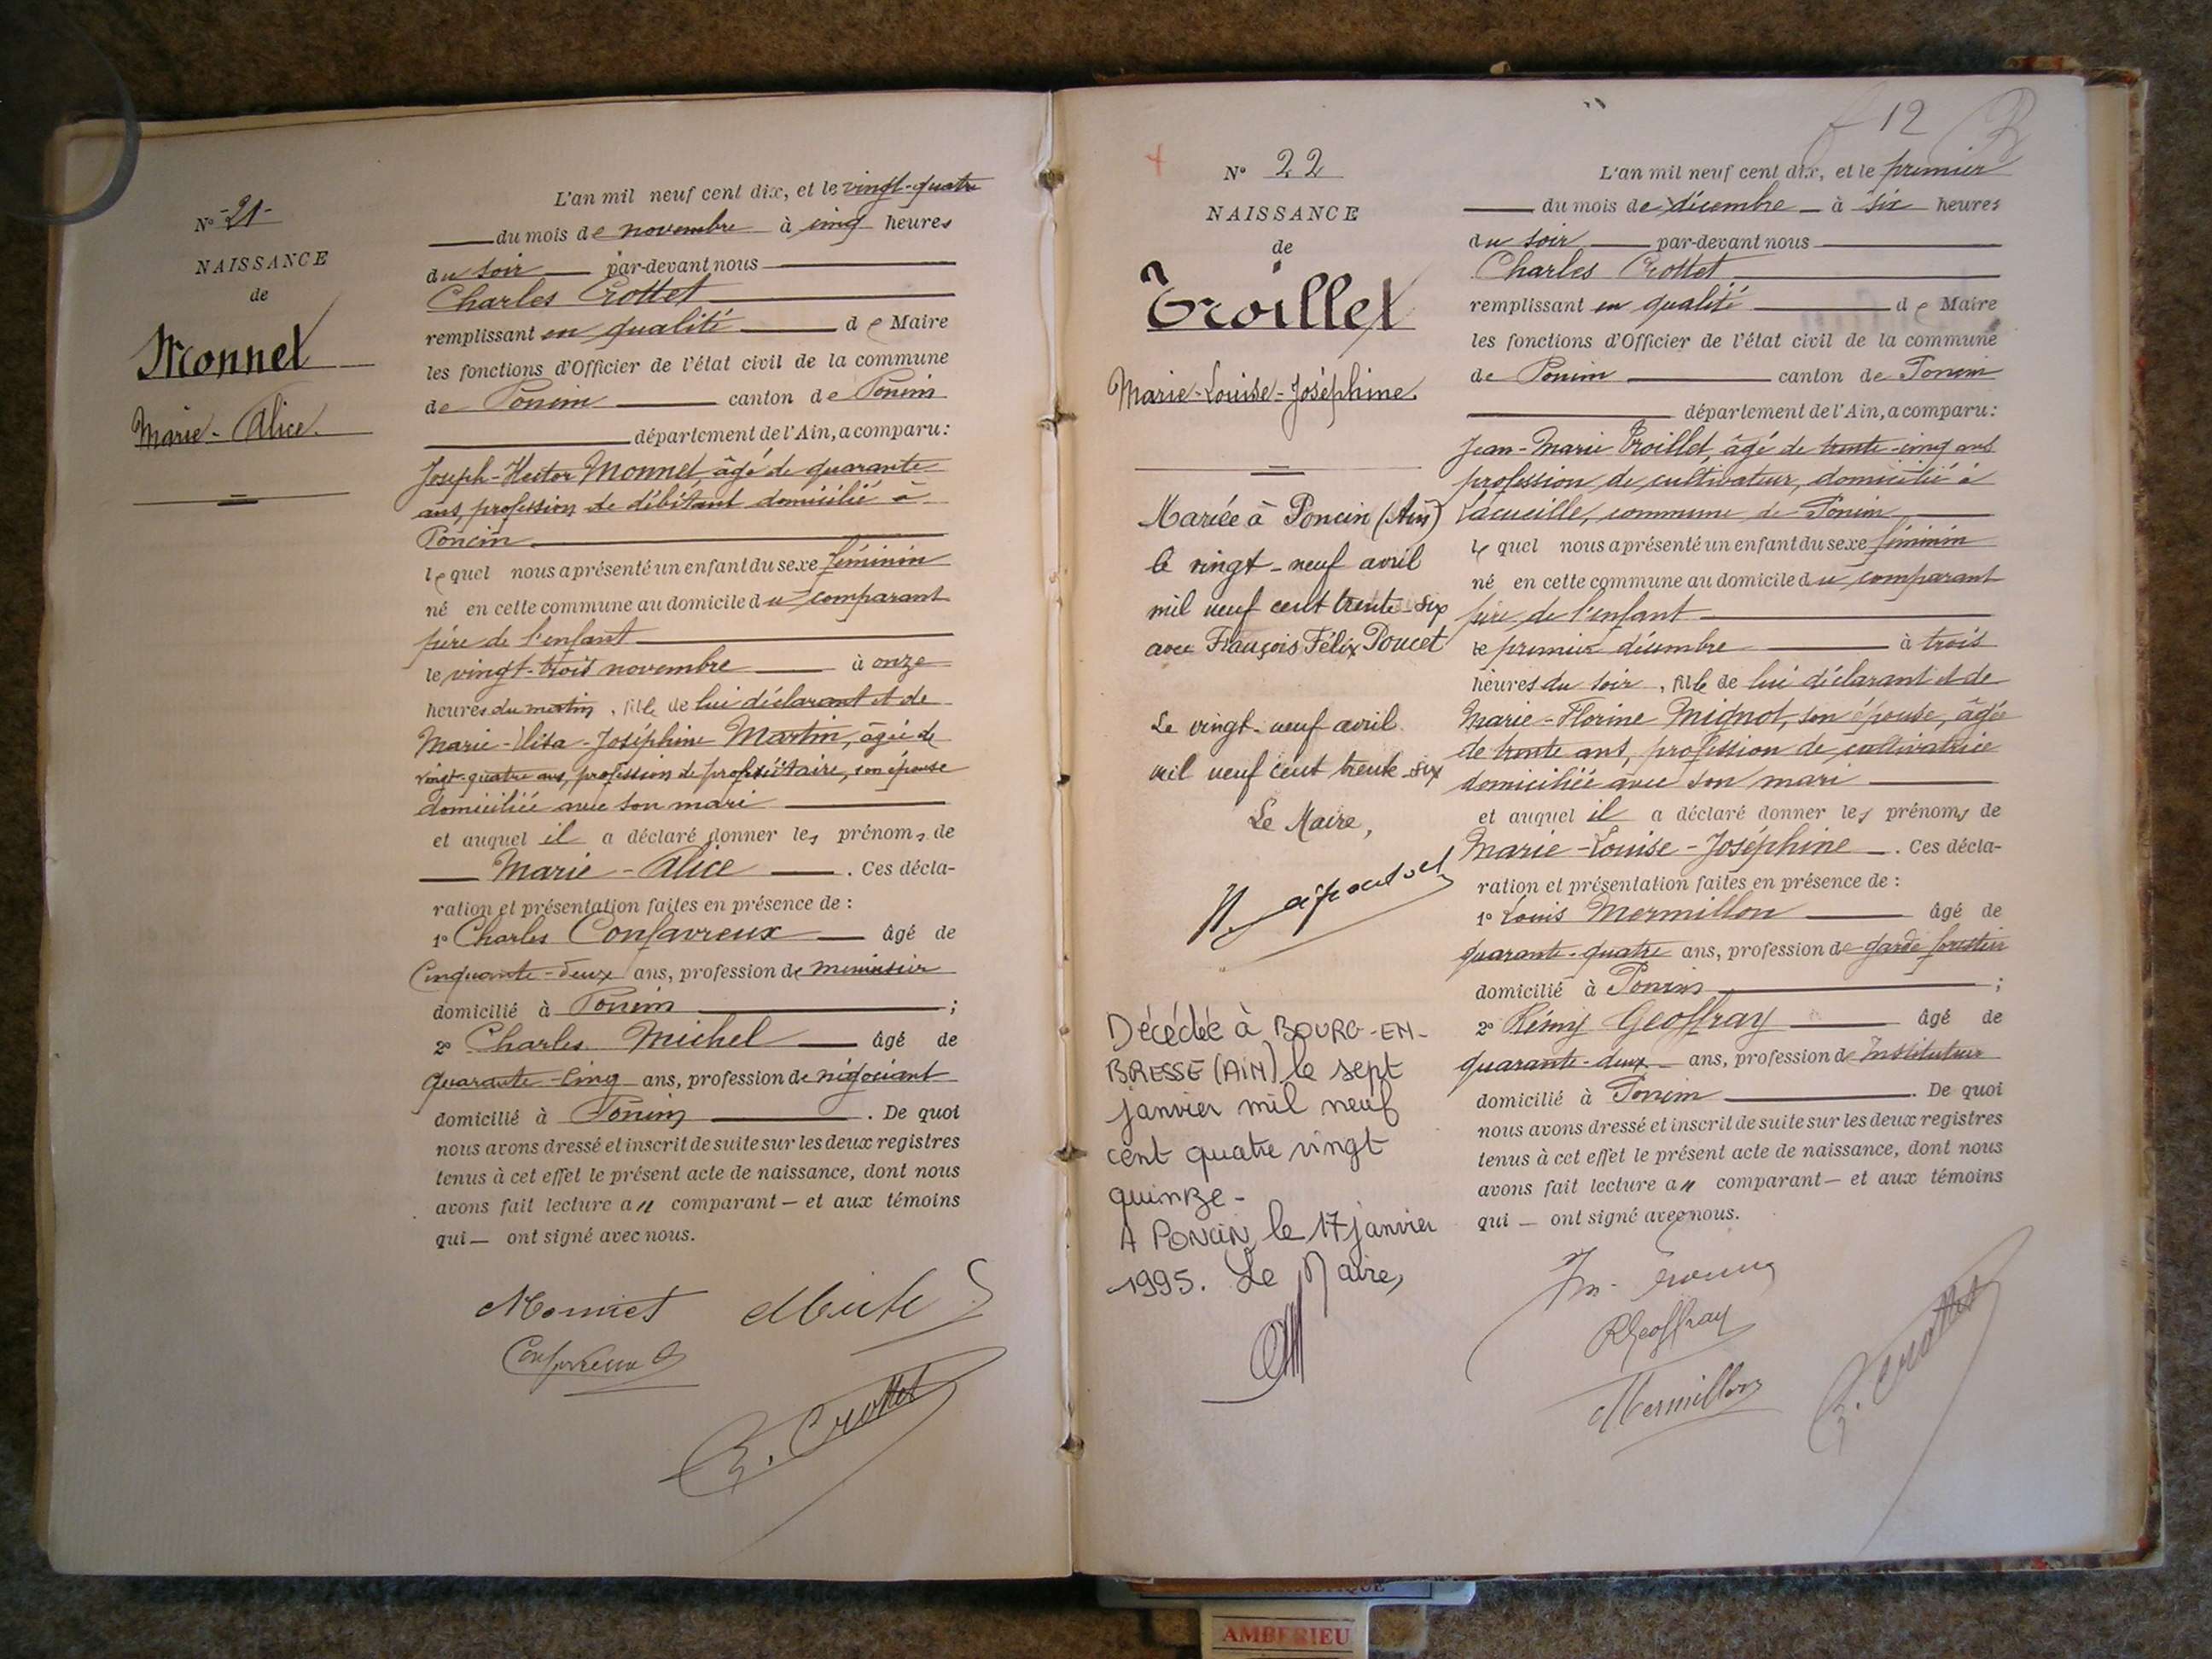 N° -21-
NAISSANCE
de
Monnet
Marie-Alice.
L'an mil neuf cent dix, et le vingt-quatre
du mois de novembre à cinq heures
du soir par-devant nous
Charles Crottet
remplissant en qualité de Maire
les fonctions d'Officier de l'état civil de la commune
de Poncin canton de Poncin
département de l'Ain, a comparu:
Joseph-Hector Monnet, âgé de quarante
ans, profession de débitant domicilié à
Poncin
lequel nous a présenté un enfant du sexe féminin
né en cette commune au domicile du comparant
père de l'enfant
le vingt-trois novembre à onze
heures du matin, fille de lui déclarant et de
Marie-Elisa-Joséphine Martin, âgée de
vingt-quatre ans, profession de propriétaire, son épouse
domiciliée avec son mari
et auquel il a déclaré donner les prénoms de
Marie-Alice. Ces décla-
ration et présentation faites en présence de :
1° Charles Confavreux âgé de
Cinquante-deux ans, profession de menuisier
domicilié à Poncin ;
2° Charles Michel âgé de
quarante-cinq ans, profession de négociant
domicilié à Poncin. De quoi
nous avons dressé et inscrit de suite sur les deux registres
tenus à cet effet le présent acte de naissance, dont nous
avons fait lecture au comparant — et aux témoins
qui — ont signé avec nous.
Monnet
Confavreux
C. Crottet
12
N° 22
NAISSANCE
de
Troillet
Marie-Louise-Joséphine.
Mariée à Poncin (Ain)
le vingt-neuf avril
mil neuf cent trente-six
avec François Félix Poncet
Le vingt-neuf avril
mil neuf cent trente-six
Le Maire,
Décédée à BOURG-EN-
BRESSE (AIN) le sept
janvier mil neuf
cent quatre vingt
quinze-
A PONCIN, le 17 janvier
1995. Le Maire,
L'an mil neuf cent dix, et le premier
du mois de décembre à six heures
du soir par-devant nous
Charles Crottet
remplissant en qualité de Maire
les fonctions d'Officier de l'état civil de la commune
de Poncin canton de Poncin
département de l'Ain, a comparu:
Jean-Marie Troillet, âgé de trente-cinq ans
profession de cultivateur, domicilié à
Lacueille, commune de Poncin
lequel nous a présenté un enfant du sexe féminin
né en cette commune au domicile du comparant
père de l'enfant
le premier décembre à trois
heures du soir, fille de lui déclarant et de
Marie-Florine Mignot, son épouse, âgée
de trente ans, profession de cultivatrice
domiciliée avec son mari
et auquel il a déclaré donner les prénoms de
Marie-Louise-Joséphine. Ces décla-
ration et présentation faites en présence de :
1° Louis Mermillon âgé de
quarante-quatre ans, profession de garde forestier
domicilié à Poncin ;
2° Rémy Geoffray âgé de
quarante-deux ans, profession d'Instituteur
domicilié à Poncin. De quoi
nous avons dressé et inscrit de suite sur les deux registres
tenus à cet effet le présent acte de naissance, dont nous
avons fait lecture au comparant — et aux témoins
qui — ont signé avec nous.
RGeoffray
Mermillon
C. Crottet
AMBERIEU